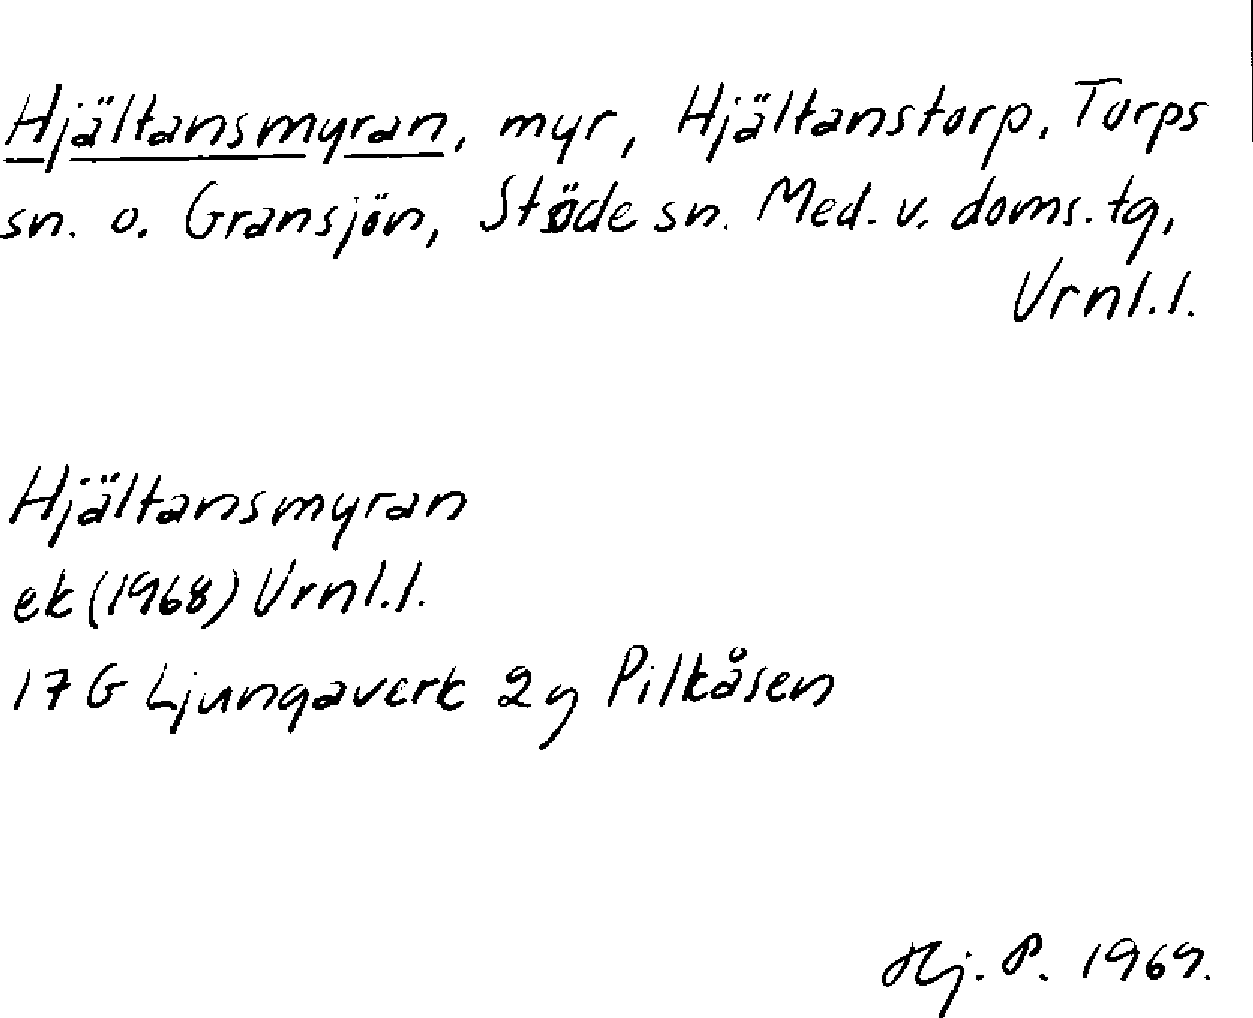 Hjältansmyran, myr, Hjältanstorp, Torps
sn. o. Gransjön, Stöde sn. Med. v. doms. tg,
Vrnl.l.
Hjältansmyran
ek (1968) Vrnl.l.
17 G Ljungaverk 2g Pilkåsen
Hj. P. 1969.